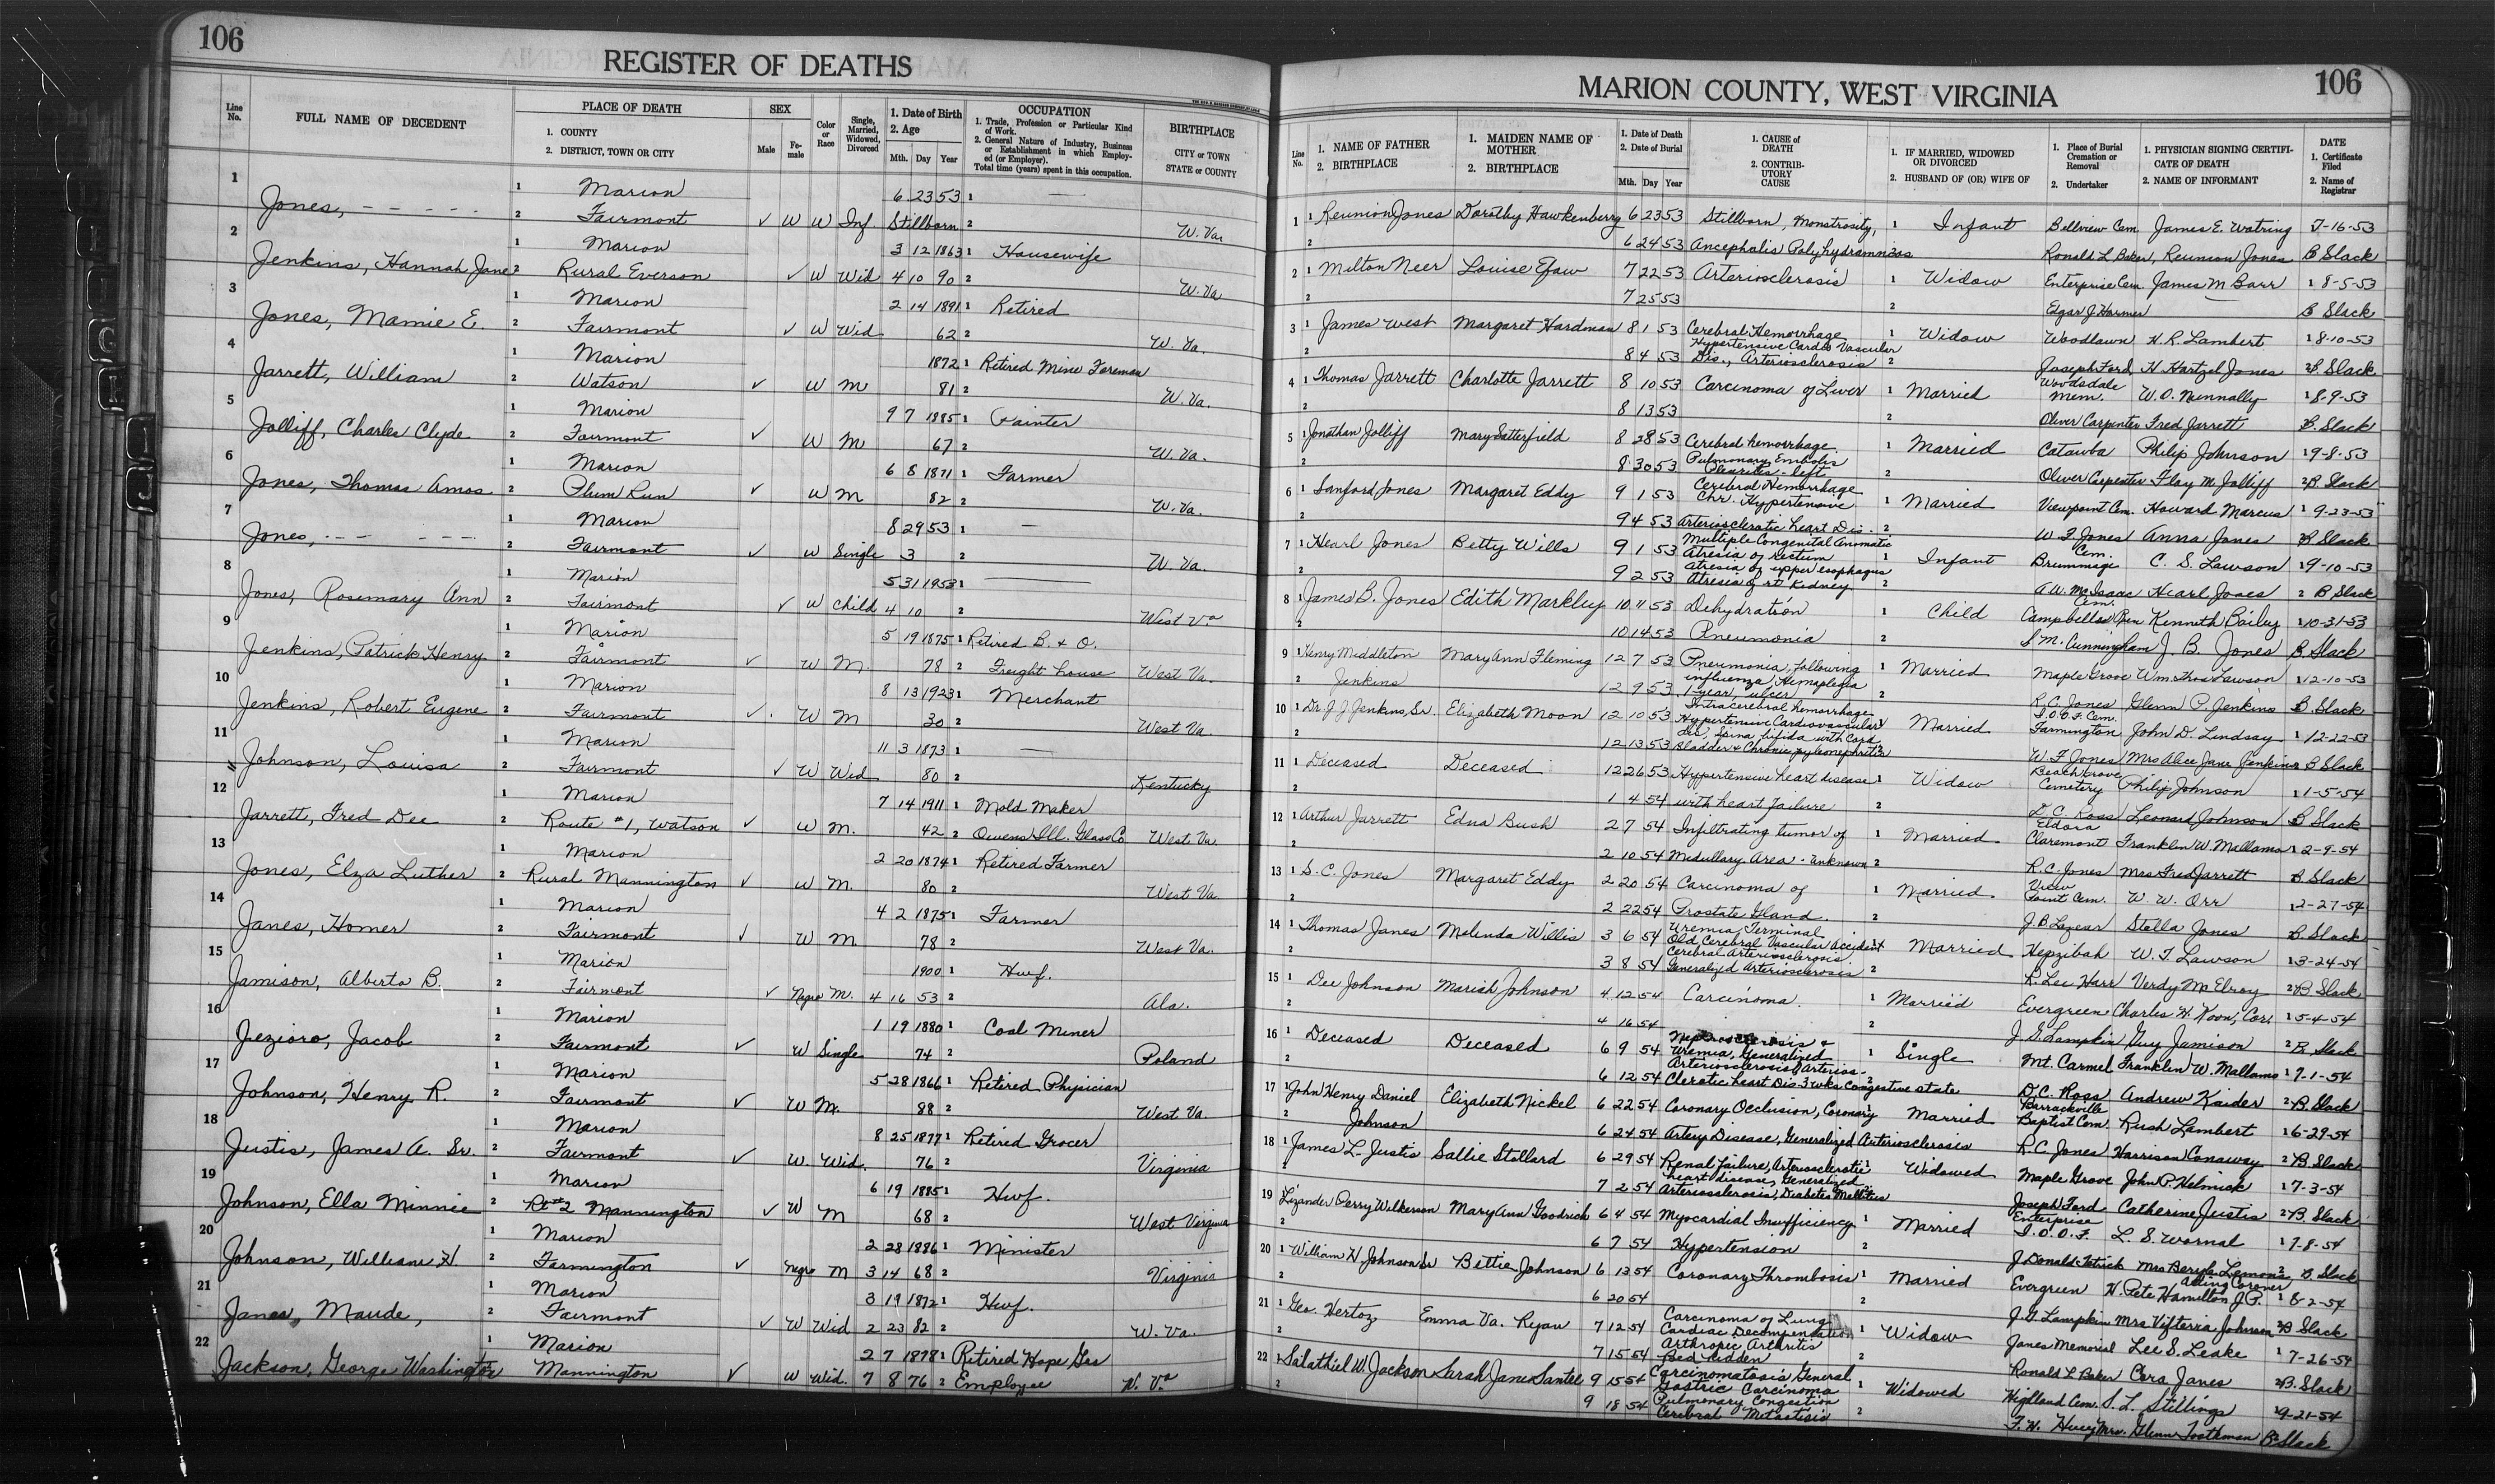 106
REGISTER OF DEATHS
Line No.
FULL NAME OF DECEDENT
PLACE OF DEATH
1. COUNTY
2. DISTRICT, TOWN OR CITY
SEX
Male
Fe-male
Color or Race
Single, Married, Widowed, Divorced
1. Date of Birth
2. Age
Mth. Day Year
OCCUPATION
1. Trade, Profession or Particular Kind of Work.
2. General Nature of Industry, Business or Establishment in which Employed (or Employer).
Total time (years) spent in this occupation.
BIRTHPLACE
CITY or TOWN
STATE or COUNTY
1 Jones, - - - - - 1 Marion 6 23 53 1 —
2 Fairmont ✓ W W Inf. Stillborn 2 W. Va.
2 Jenkins, Hannah Jane 1 Marion 3 12 1863 1 Housewife
2 Rural Everson ✓ W Wid 4 10 90 2 W. Va
3 Jones, Mamie E. 1 Marion 2 14 1891 1 Retired
2 Fairmont ✓ W Wid 62 2 W. Va.
4 Jarrett, William 1 Marion 1872 1 Retired Mine Foreman
2 Watson ✓ W M 81 2 W. Va.
5 Jolliff, Charles Clyde 1 Marion 9 7 1885 1 Painter
2 Fairmont ✓ W M 67 2 W. Va.
6 Jones, Thomas Amos 1 Marion 6 8 1871 1 Farmer
2 Plum Run ✓ W M 82 2 W. Va.
7 Jones, - - - - - - 1 Marion 8 29 53 1 —
2 Fairmont ✓ W Single 3 2 W. Va.
8 Jones, Rosemary Ann 1 Marion 5 31 1953 1 —
2 Fairmont ✓ W Child 4 10 2 West Va
9 Jenkins, Patrick Henry 1 Marion 5 19 1875 1 Retired B. & O.
2 Fairmont ✓ W M. 78 2 Freight house West Va.
10 Jenkins, Robert Eugene 1 Marion 8 13 1923 1 Merchant
2 Fairmont ✓ W M 30 2 West Va.
11 Johnson, Louisa 1 Marion 11 3 1873 1 —
2 Fairmont ✓ W Wid 80 2 Kentucky
12 Jarrett, Fred Dee 1 Marion 7 14 1911 1 Mold Maker
2 Route #1, Watson ✓ W M. 42 2 Owens Ill. Glass Co. West Va.
13 Jones, Elza Luther 1 Marion 2 20 1874 1 Retired Farmer
2 Rural Mannington ✓ W M. 80 2 West Va.
14 Janes, Homer 1 Marion 4 2 1875 1 Farmer
2 Fairmont ✓ W M. 78 2 West Va.
15 Jamison, Alberta B. 1 Marion 1900 1 Hwf.
2 Fairmont ✓ Negro M. 4 16 53 2 Ala.
16 Jezioro, Jacob 1 Marion 1 19 1880 1 Coal Miner
2 Fairmont ✓ W Single 74 2 Poland
17 Johnson, Henry R. 1 Marion 5 28 1866 1 Retired Physician
2 Fairmont ✓ W M. 88 2 West Va.
18 Justis, James A. Sr. 1 Marion 8 25 1877 1 Retired Grocer
2 Fairmont ✓ W. Wid. 76 2 Virginia
19 Johnson, Ella Minnie 1 Marion 6 19 1885 1 Hwf.
2 Rt #2 Mannington ✓ W M 68 2 West Virginia
20 Johnson, William H. 1 Marion 2 28 1886 1 Minister
2 Farmington ✓ Negro M 3 14 68 2 Virginia
21 Janes, Maude, 1 Marion 3 19 1872 1 Hwf.
2 Fairmont ✓ W Wid 2 23 82 2 W. Va.
22 Jackson, George Washington 1 Marion 2 7 1878 1 Retired Hope Gas
2 Mannington ✓ W Wid. 7 8 76 2 Employee W. Va
MARION COUNTY, WEST VIRGINIA
106
Line No.
1. NAME OF FATHER
2. BIRTHPLACE
1. MAIDEN NAME OF MOTHER
2. BIRTHPLACE
1. Date of Death
2. Date of Burial
Mth. Day Year
1. CAUSE of DEATH
2. CONTRIBUTORY CAUSE
1. IF MARRIED, WIDOWED OR DIVORCED
2. HUSBAND OF (OR) WIFE OF
1. Place of Burial Cremation or Removal
2. Undertaker
1. PHYSICIAN SIGNING CERTIFICATE OF DEATH
2. NAME OF INFORMANT
DATE
1. Certificate Filed
2. Name of Registrar
1 1 Reunion Jones Dorothy Hawkenberry 6 23 53 Stillborn, Monstrosity, 1 Infant Bellview Cem. James E. Watring 7-16-53
2 6 24 53 Ancephalis Polyhydramnios Ronald L Baker, Reunion Jones B Slack
2 1 Milton Neer Louise Efaw 7 22 53 Arteriosclerosis 1 Widow Enterprise Cem. James M Barr 1 8-5-53
2 7 25 53 2 Edgar J Harmer — B Slack
3 1 James West Margaret Hardman 8 1 53 Cerebral Hemorrhage 1 Widow Woodlawn H. R. Lambert 1 8-10-53
2 8 4 53 Hypertensive Cardio Vascular Dis., Arteriosclerosis 2 Joseph Ford H Hartzel Jones 2 B. Slack
4 1 Thomas Jarrett Charlotte Jarrett 8 10 53 Carcinoma of Liver 1 Married Woodsdale Mem. W. O. Nunnally 1 8-9-53
2 8 13 53 2 Oliver Carpenter Fred Jarrett 2 B. Slack
5 1 Jonathan Jolliff Mary Satterfield 8 28 53 Cerebral hemorrhage 1 Married Catawba Philip Johnson 1 9-8-53
2 8 30 53 Pulmonary Embolis Pleuritis - left 2 Oliver Carpenter Flay M. Jolliff 2 B Slack
6 1 Sanford Jones Margaret Eddy 9 1 53 Cerebral Hemorrhage Chr. Hypertensive 1 Married Viewpoint Cem. Howard Marcus 1 9-23-53
2 9 4 53 Arteriosclerotic heart Dis. 2 W F Jones Anna Jones 2 B Slack
7 1 Hearl Jones Betty Wills 9 1 53 Multiple Congenital Anomatic Atresia of rectum 1 Infant Brummage Cem. C. S. Lawson 1 9-10-53
2 9 2 53 Atresia of upper esophagus Atresia of rt. kidney 2 A W. McIsaac Hearl Jones 2 B Slack
8 1 James B. Jones Edith Markley 10 11 53 Dehydration 1 Child Campbells Cem. Kenneth Bailey 1 10-31-53
2 10 14 53 Pneumonia 2 S M. Cunningham J. B. Jones B. Slack
9 1 Henry Middleton Mary Ann Fleming 12 7 53 Pneumonia, following 1 Married Maple Grove Wm. Thos Lawson 1 12-10-53
2 Jenkins 12 9 53 influenza, Hemaplegia 1 year, ulcer 2 R. C. Jones Glenn P. Jenkins B. Slack
10 1 Dr. J J Jenkins, Sr. Elizabeth Moon 12 10 53 Intracerebral hemorrhage Hypertensive Cardiovascular 1 Married I.O.O.F. Cem. Farmington John D. Lindsay 1 12-22-53
2 12 13 53 dis, spina bifida with Cord Bladder & Chronic pyleonephritis W. F. Jones Mrs Alice Jane Jenkins B Slack
11 1 Deceased Deceased 12 26 53 Hypertensive heart disease 1 Widow Beach Grove Cemetery Philip Johnson 1 1-5-54
2 1 4 54 with heart failure 2 D. C. Ross Leonard Johnson B Slack
12 1 Arthur Jarrett Edna Bush 2 7 54 Infiltrating tumor of 1 Married Eldora Claremont Franklin W. Mallamo 1 2-9-54
2 2 10 54 Medullary Area - Unknown 2 R. C. Jones Mrs Fred Jarrett B Slack
13 1 S. C. Jones Margaret Eddy 2 20 54 Carcinoma of 1 Married View Point Cem. W. W. Orr 1 2-27-54
2 2 22 54 Prostate Gland. 2 J. B. Lazear Stella Jones B. Slack
14 1 Thomas Janes Malinda Willis 3 6 54 Uremia Terminal Old Cerebral Vascular Accident 1 Married Hepzibah W. T. Lawson 1 3-24-54
2 3 8 54 Cerebral Arteriosclerosis Generalized Arteriosclerosis 2 R. Lee Harr Verdy McElroy 2 B Slack
15 1 Dee Johnson Mariah Johnson 4 12 54 Carcinoma. 1 Married Evergreen Charles H. Koon, Cor. 1 5-4-54
2 4 16 54 2 J G Lampkin Guy Jamison 2 B Slack
16 1 Deceased Deceased 6 9 54 Nephrosclerosis & Uremia, Generalized 1 Single Mt. Carmel Franklin W. Mallamo 1 7-1-54
2 6 12 54 Arteriosclerosis, Arteriosclerotic heart Dis-3 wks. Congestive state D. C. Ross Andrew Kaider 2 B. Slack
17 1 John Henry Daniel Elizabeth Nickel 6 22 54 Coronary Occlusion, Coronary 1 Married Barrackville Baptist Cem. Rush Lambert 1 6-29-54
2 Johnson 6 24 54 Artery Disease, Generalized Arteriosclerosis R. C. Jones Harrison Conaway 2 B. Slack
18 1 James L. Justis Sallie Stollard 6 29 54 Renal failure, Arteriosclerotic 1 Widowed Maple Grove John P. Helmick 1 7-3-54
2 7 2 54 heart disease, Generalized Arteriosclerosis, Diabetes Mellitus Joseph Ford Catherine Justis 2 B. Slack
19 1 Lizander Perry Wilkerson Mary Ann Goodrich 6 4 54 Myocardial Insufficiency 1 Married Enterprise I.O.O.F. L. S. Wornal 1 7-8-54
2 6 7 54 Hypertension 2 J. Donald Tetrick Mrs Beryle Lemons 2 B. Slack
20 1 William H. Johnson Sr Bettie Johnson 6 13 54 Coronary Thrombosis 1 Married Evergreen H. Pete Hamilton J.P. Acting Coroner 1 8-2-54
2 6 20 54 2 J. G. Lampkin Mrs Vifterra Johnson 2 B Slack
21 1 Geo. Hertog Emma Va. Ryan 7 12 54 Carcinoma of Lung Cardiac Decompensation 1 Widow Jones Memorial Lee S. Leake 1 7-26-54
2 7 15 54 Arthropic Arthritis Bed Ridden 2 Ronald L Baker Cora Janes 2 B. Slack
22 1 Salathiel W. Jackson Sarah Jane Santee 9 15 54 Carcinomatosis General Gastric Carcinoma 1 Widowed Highland Cem. S. L. Stillings 1 9-21-54
2 9 18 54 Pulmonary Congestion Cerebral Metastisis 2 F. H. Huey Mrs. Glenn Toothman B. Slack